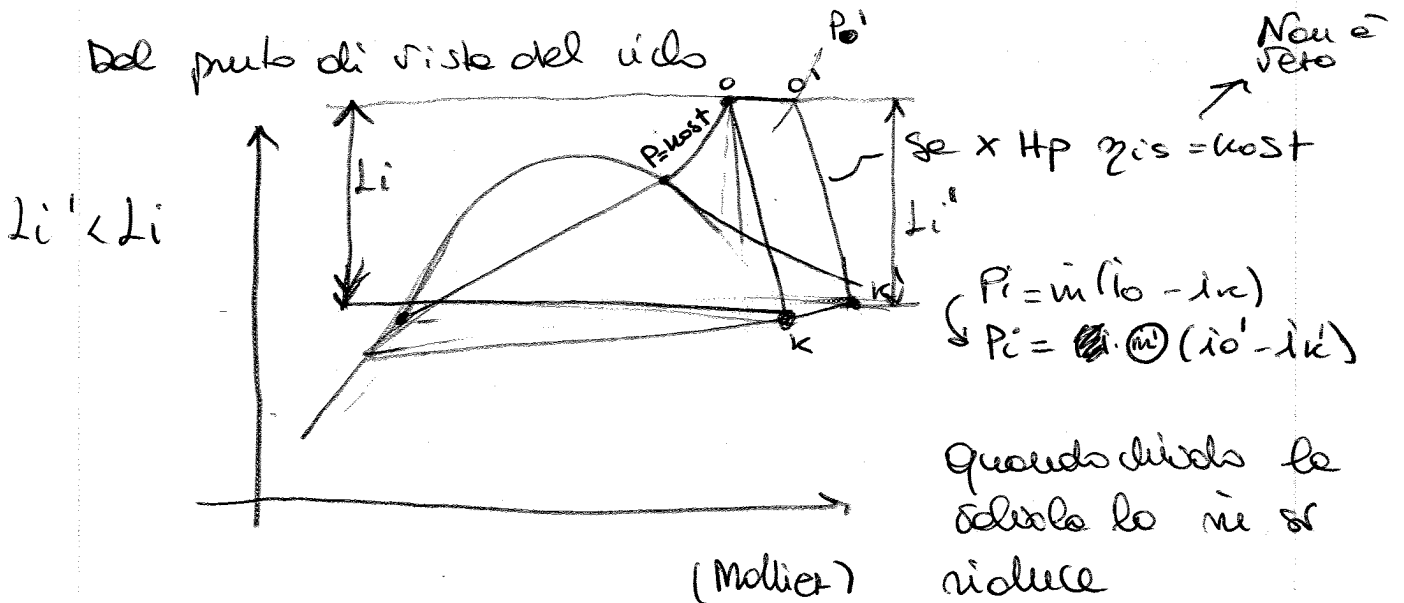 Dal punto di vista del ciclo
Po'
Non è
vero
O
O'
P=kost
Se x Hp ηis = kost
Li
Li'
Li' < Li
K'
K
Pi = ṁ (io - ik)
Pi = ṁ' (io' - ik')
quando chiudo la
valvola la ṁ si
riduce
(Mollier)